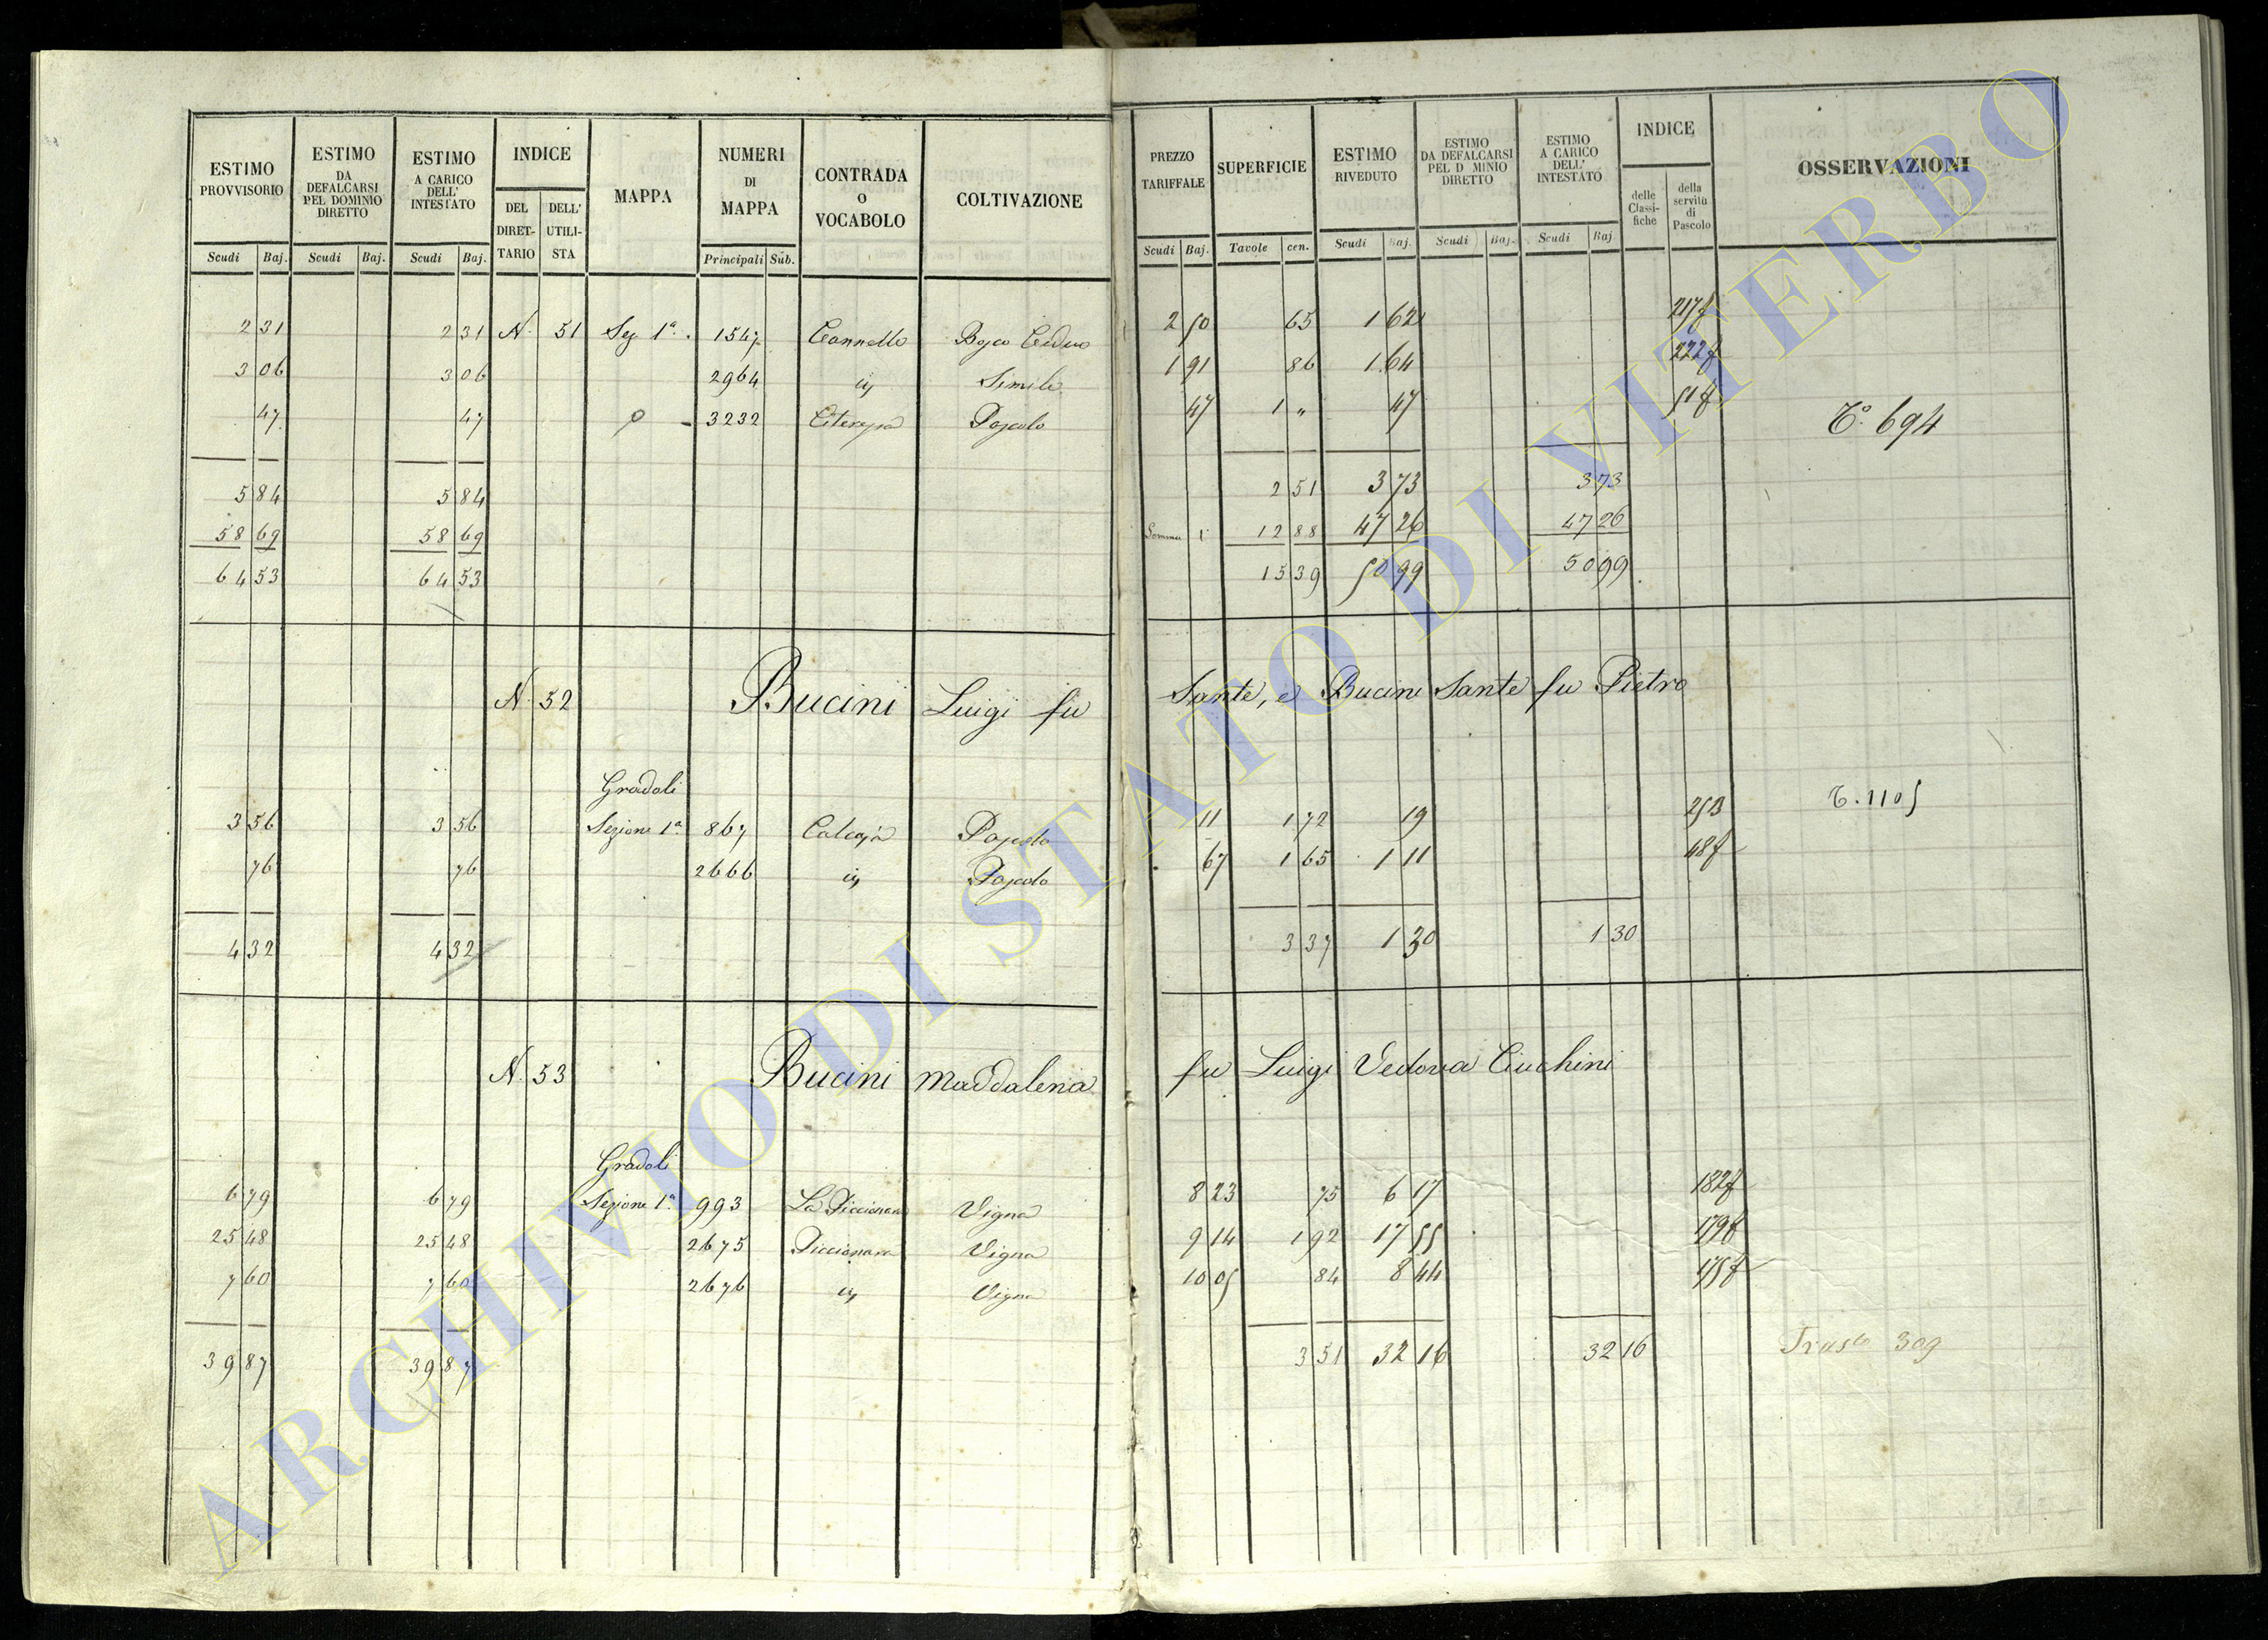 ESTIMO PROVVISORIO | ESTIMO DA DEFALCARSI PEL DOMINIO DIRETTO | ESTIMO A CARICO DELL' INTESTATO | INDICE | MAPPA | NUMERI DI MAPPA | CONTRADA O VOCABOLO | COLTIVAZIONE | PREZZO TARIFFALE | SUPERFICIE | ESTIMO RIVEDUTO | ESTIMO DA DEFALCARSI PEL D MINIO DIRETTO | ESTIMO A CARICO DELL' INTESTATO | INDICE | OSSERVAZIONI
DEL DIRET-TARIO | DELL' UTILI-STA | delle Classi-fiche | della servitù di Pascolo
Scudi | Baj. | Scudi | Baj. | Scudi | Baj. | Principali | Sub. | Scudi | Baj. | Tavole | cen. | Scudi | Baj. | Scudi | Baj. | Scudi | Baj
2 31 | 2 31 | N. 51 | Sez 1ª. | 1547 | Cannello | Bosco Ceduo | 2 50 | 65 | 1 62 | 217f
3 06 | 3 06 | 2964 | iη | Simile | 1 91 | 86 | 1 64 | 222f
47 | 47 | 3232 | Pascolo | 47 | 1 " | 47 | 51f | T.º 694
5 84 | 5 84 | 2 51 | 3 73 | 3 73
58 69 | 58 69 | Somma | 12 88 | 47 26 | 47 26
64 53 | 64 53 | 15 39 | 50 99 | 50 99
N. 52 | Bucini Luigi fu Sante, e Bucini Sante fu Pietro
Gradoli
3 56 | 3 56 | Sezione 1ª | 867 | 11 | 1 72 | 19 | T. 1105
76 | 76 | 2666 | iη | Pascolo | 67 | 1 65 | 1 11 | 48f
4 32 | 4 32 | 3 37 | 1 30 | 1 30
N. 53 | Bucini Maddalena fu Luigi Vedova Ciuchini
Gradoli
6 79 | 6 79 | Sezione 1ª | 993 | La Piccionara | Vigna | 8 23 | 75 | 6 17 | 182f
25 48 | 25 48 | 2675 | Piccionara | Vigna | 9 14 | 1 92 | 17 55 | 179f
7 60 | 7 60 | 2676 | iη | Vigna | 10 05 | 84 | 8 44 | 175f
39 87 | 39 87 | 3 51 | 32 16 | 32 16 | 309
ARCHIVIO DI STATO DI VITERBO